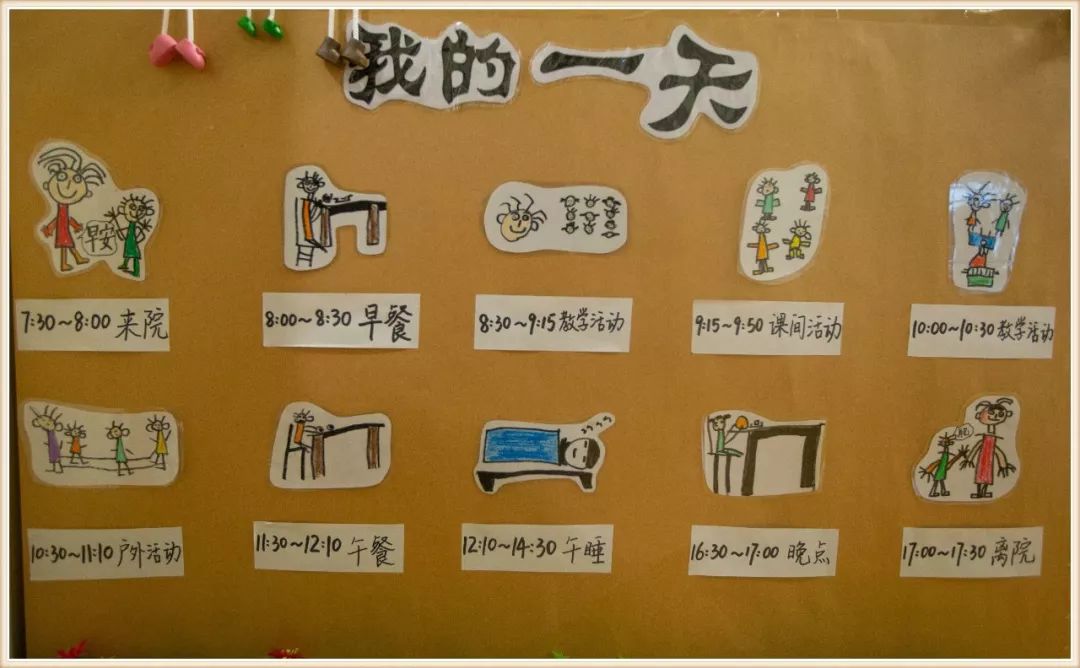 我的一天
早安
7:30~8:00 来院
8:00~8:30 早餐
8:30~9:15 教学活动
9:15~9:50 课间活动
10:00~10:30 教学活动
10:30~11:10 户外活动
11:30~12:10 午餐
12:10~14:30 午睡
16:30~17:00 晚点
17:00~17:30 离院